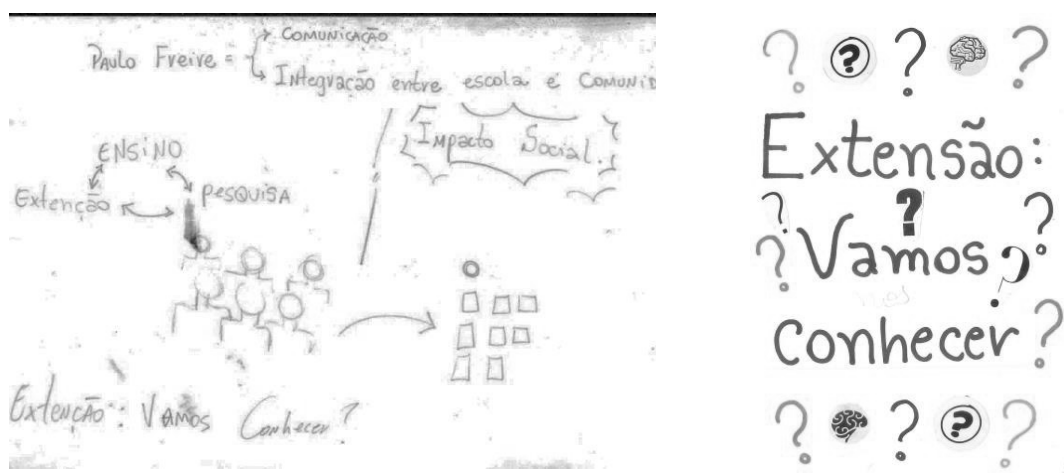 Paulo Freire =
→ Comunicação
↳ Integração entre escola e Comunid
Impacto Social.
ENSiNO
Extenção
PESQUiSA
Extenção: Vamos Conhecer?
? ? ? ?
Extensão:
? ? ?
? Vamos ?
Conhecer ?
? ? ? ?